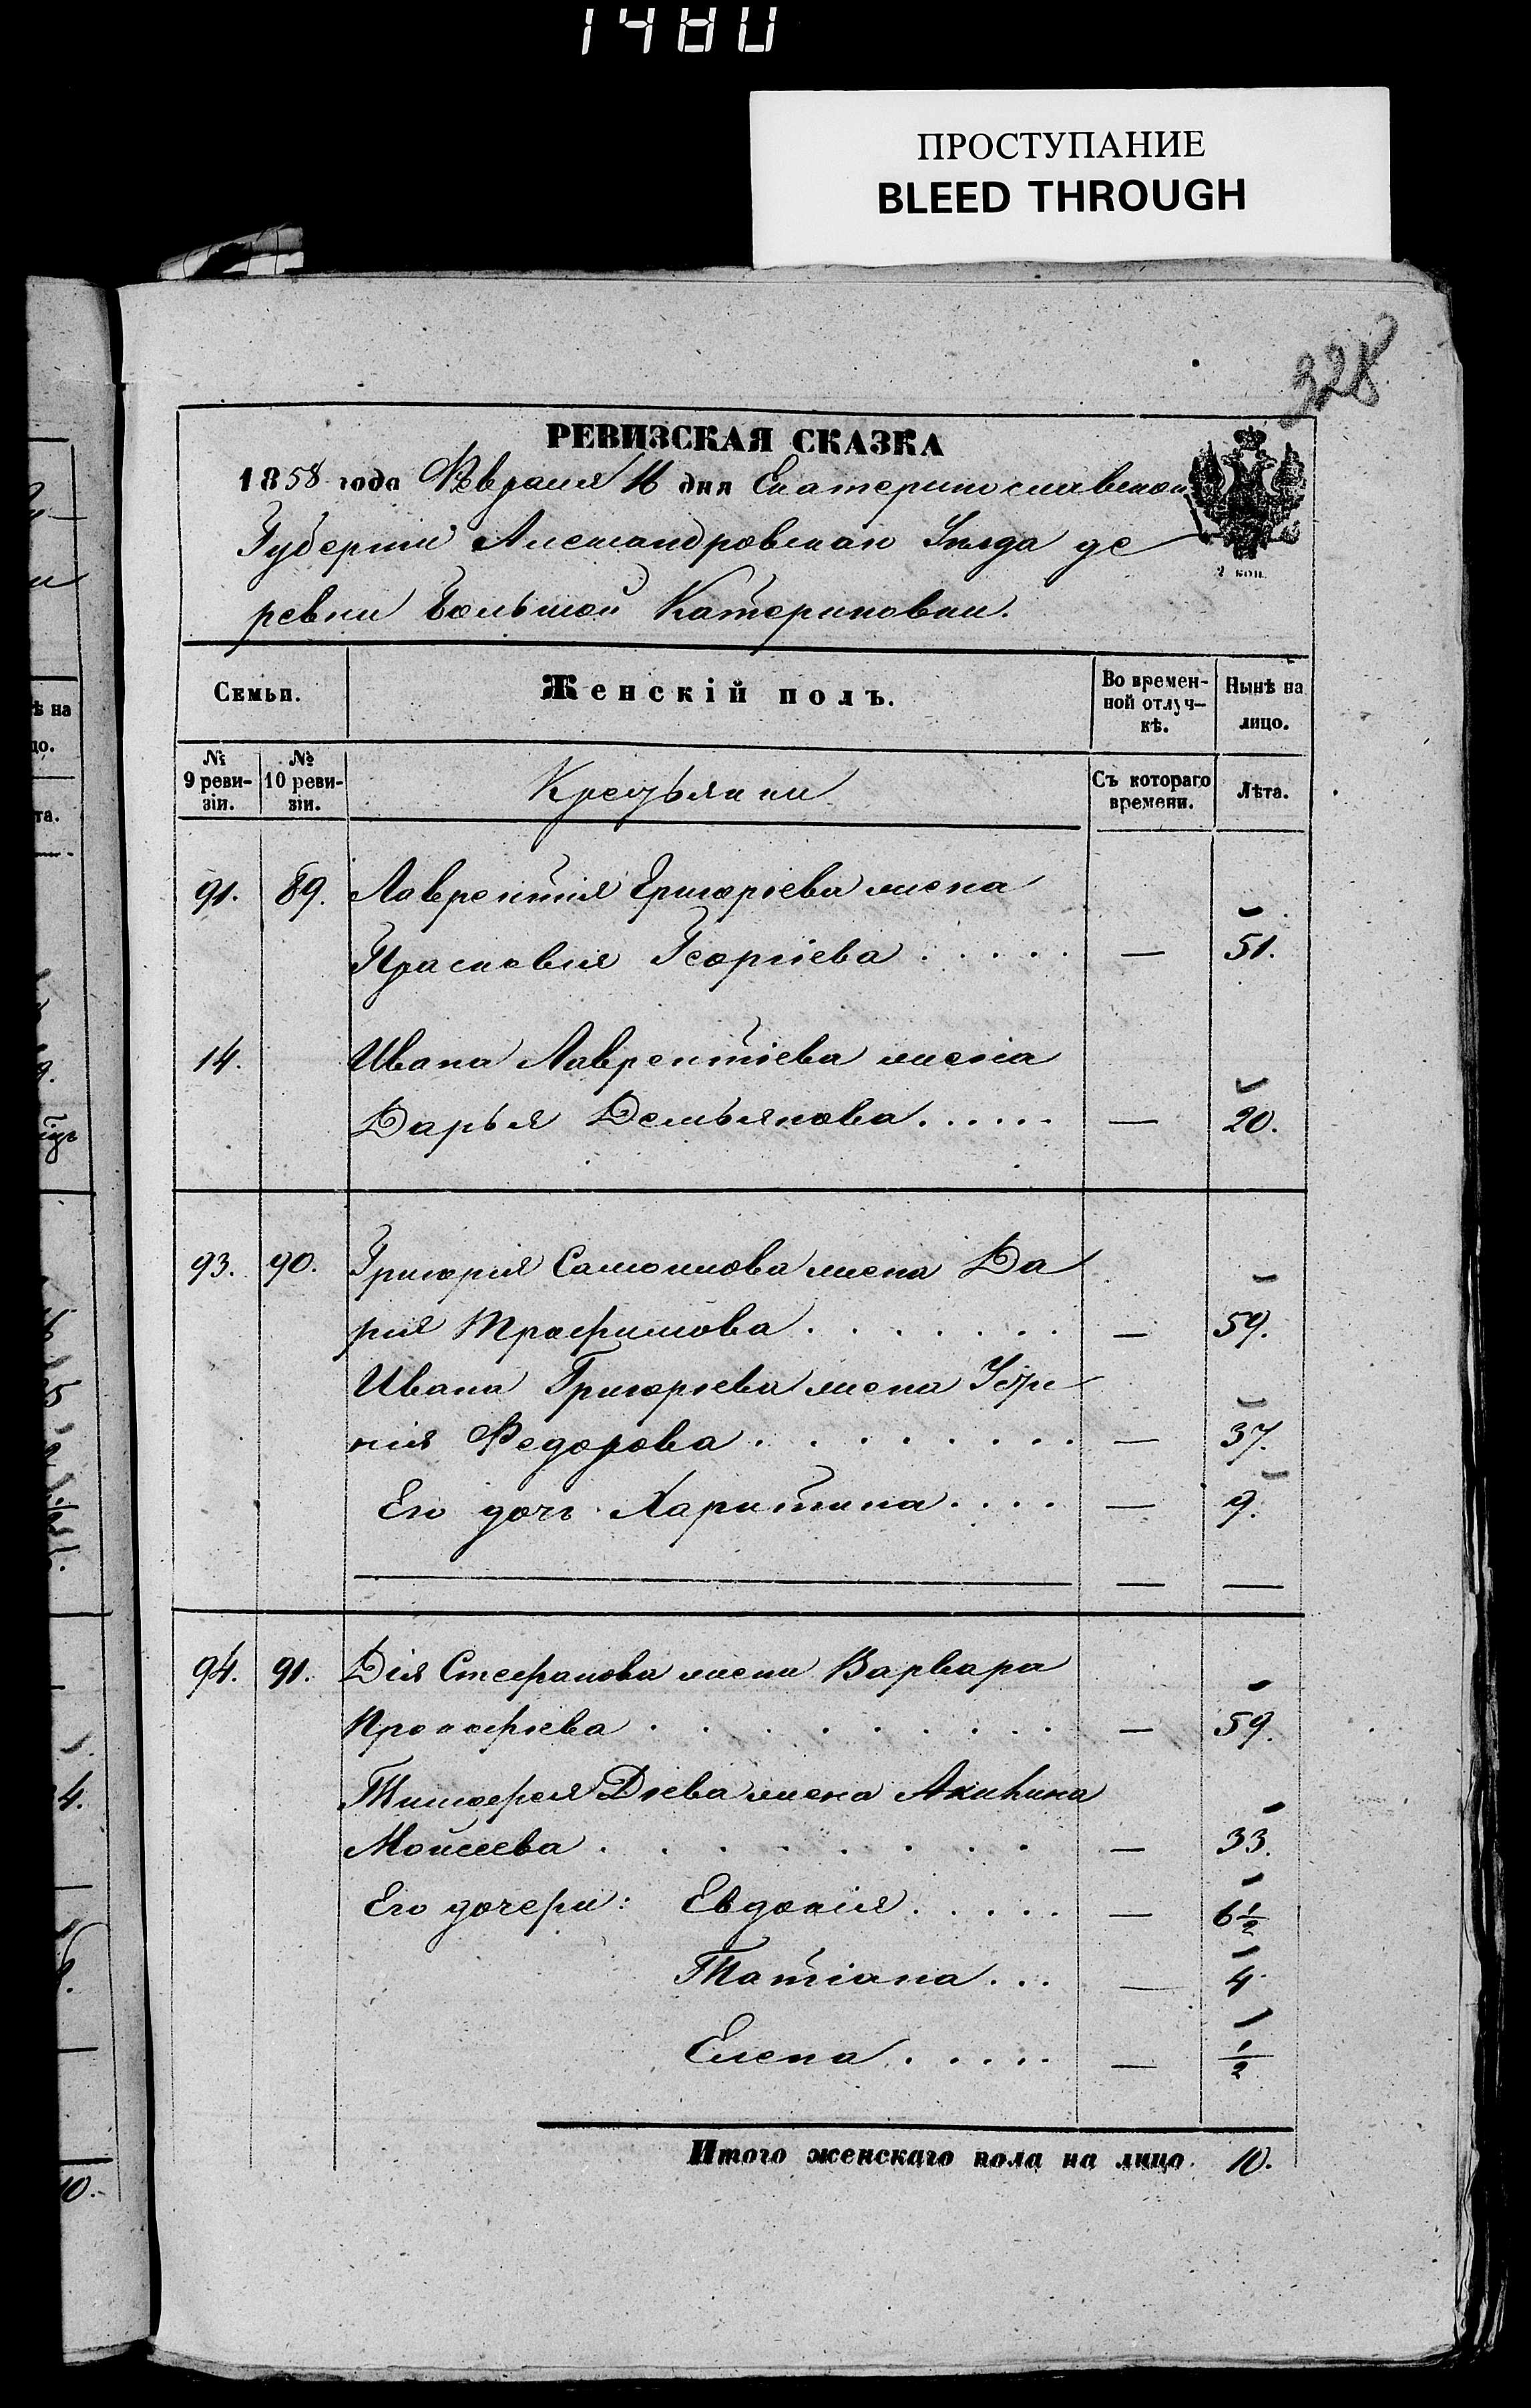 1480
ПРОСТУПАНИЕ
BLEED THROUGH
328
РЕВИЗСКАЯ СКАЗКА
1858 года Февраля 16 дня Екатеринославской
Губернии Александровскаго Уѣзда де
ревни Большой Катериновки.
2 коп.
Семьи. Женскій полъ. Во времен- Нынѣ на
ной отлуч- лицо.
кѣ.
№ 9 реви- зіи. № 10 реви- зіи. Крестьянки Съ котораго времени. Лѣта.
91. 89. Лаврентія Григоріева жена
Прасковія Георгіева . . . . . — 51.
14. Ивана Лаврентіева жена
Дарья Демьянова . . . . . — 20.
93. 90. Григорія Самойлова жена Да
рія Трофимова . . . . . . — 59.
Ивана Григоріева жена
Федорова . . . . . . . . — 37.
Его дочь Харитина . . . . — 9.
94. 91. Дія Стефанова жена Варвара
Прокофіева . . . . . . . . — 59.
Тимофея Діева жена Акилина
Моисеева . . . . . . . . — 33.
Его дочери: Евдокія . . . . . — 6½
Татіана . . . — 4.
Елена . . . . . — ½
Итого женскаго пола на лицо. 10.